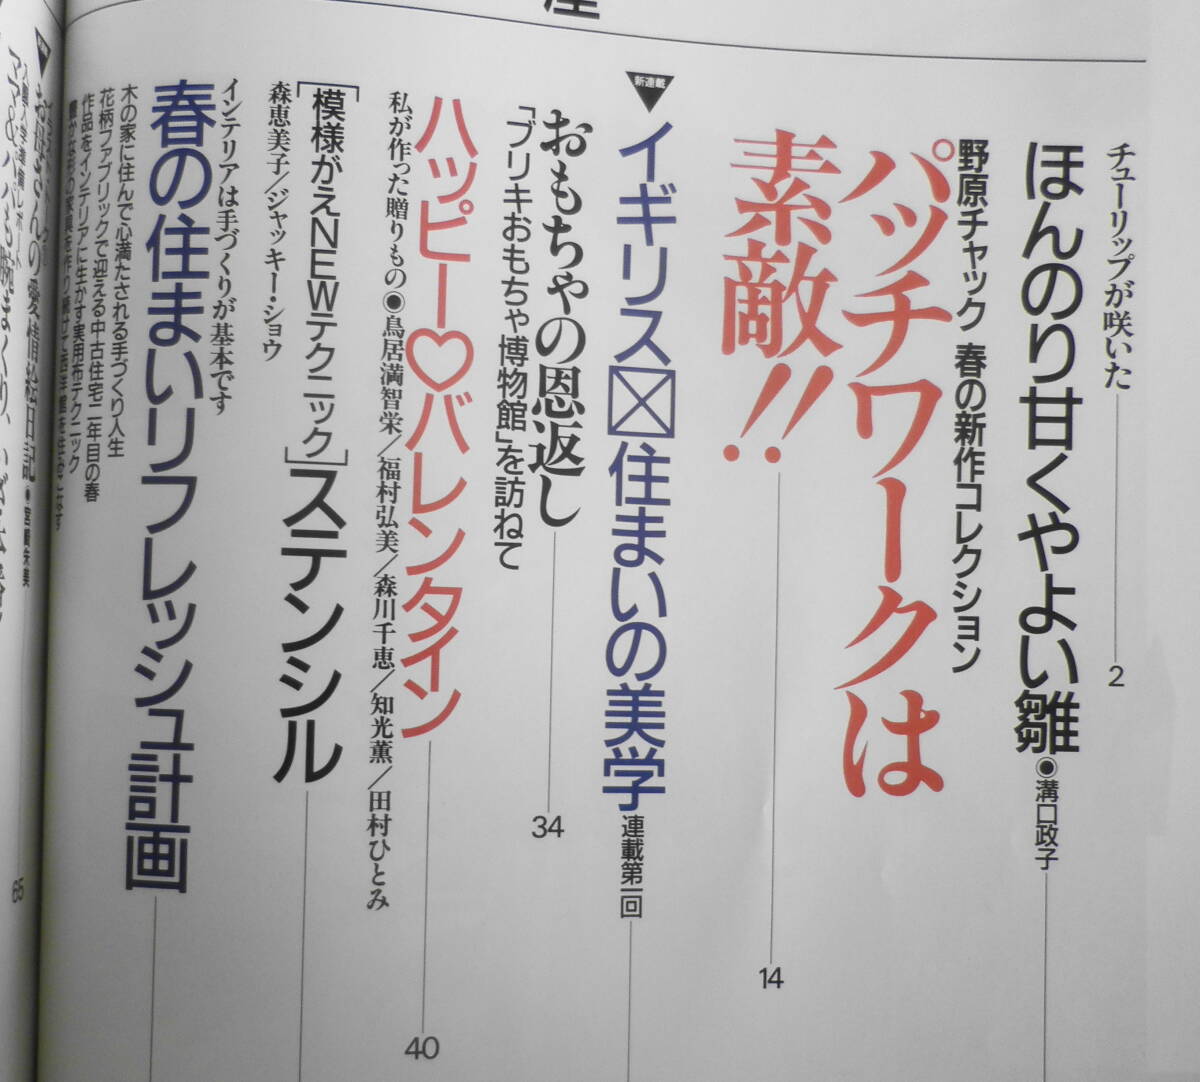 チューリップが咲いた
2
ほんのり甘くやよい雛●溝口政子
野原チャック 春の新作コレクション
パッチワークは
素敵!!
14
新連載
イギリス☒住まいの美学 連載第一回
おもちゃの恩返し
34
「ブリキおもちゃ博物館」を訪ねて
ハッピー♡バレンタイン
40
私が作った贈りもの◉鳥居満智栄/福村弘美/森川千恵/知光薫/田村ひとみ
[模様がえNEWテクニック]ステンシル
森恵美子/ジャッキー・ショウ
インテリアは手づくりが基本です
春の住まいリフレッシュ計画
木の家に住んで心満たされる手づくり人生
花柄ファブリックで迎える中古住宅二年目の春
作品をインテリアに生かす実用布テクニック
お母さんの愛情絵日記
65